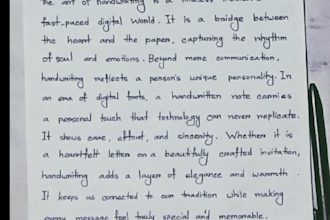 The art of handwriting is a timeless
fast-paced digital world. It is a bridge between
the heart and the paper, capturing the rhythm
of soul and emotions. Beyond mere communication,
handwriting reflects a person's unique personality. In
an era of digital fonts, a handwritten note carries
a personal touch that technology can never replicate.
It shows care, effort, and sincerity. Whether it is
a heartfelt letter or a beautifully crafted invitation,
handwriting adds a layer of elegance and warmth.
It keeps us connected to our tradition while making
every message feel truly special and memorable.